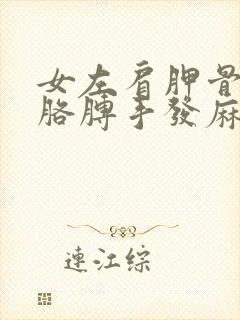 女左肩胛骨
胳膊手發麻
連江綜